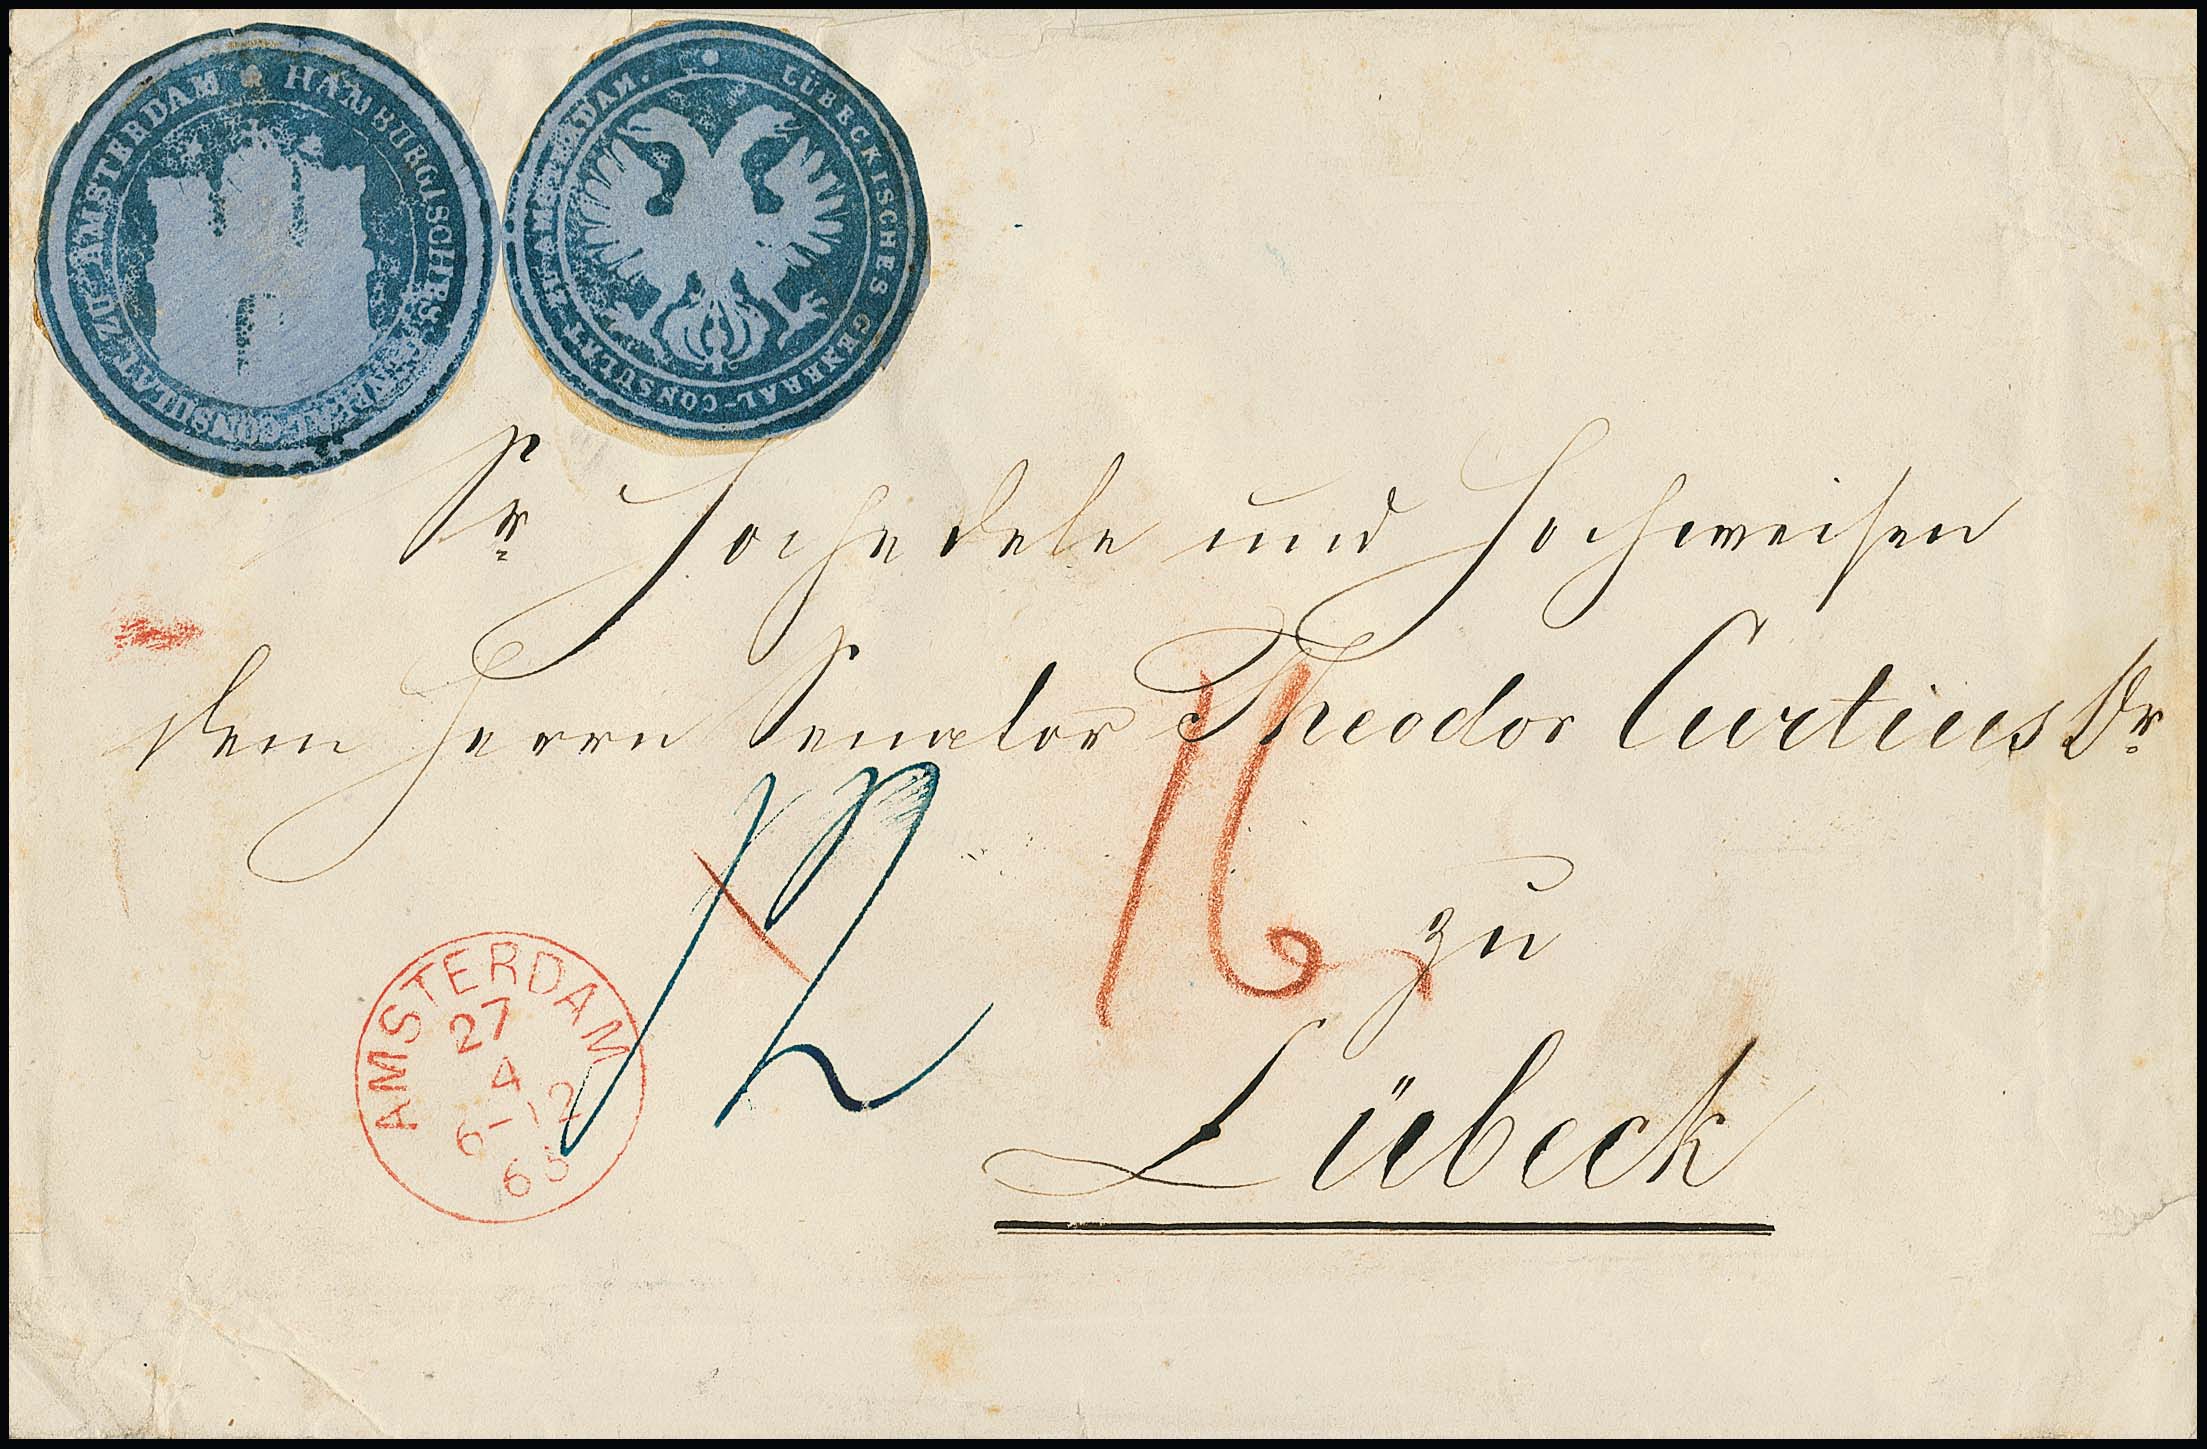 HAMBURGISCHES GENERAL-CONSULAT ZU AMSTERDAM
LÜBECKISCHES GENERAL-CONSULAT ZU AMSTERDAM.
Sr Hochedele und Hochweisen
dem Herrn Senator Theodor Curtius Dr
16
zu
Lübeck
AMSTERDAM
27
4
6-12
65